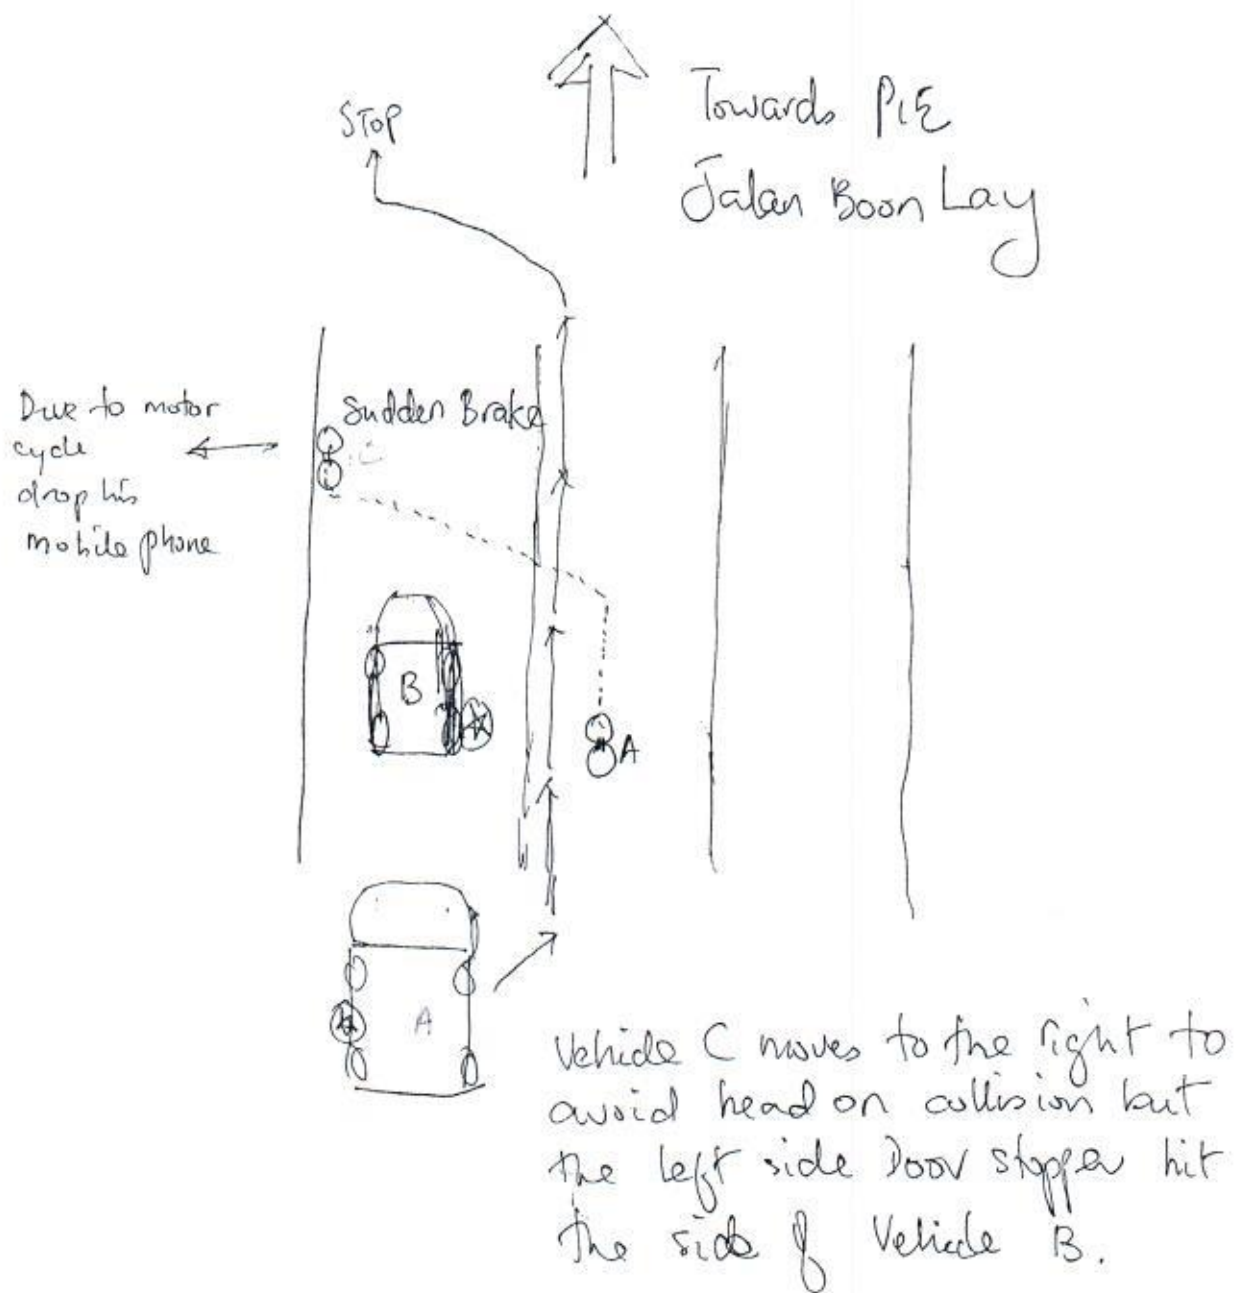 Towards PIE
Jalan Boon Lay
STOP
Sudden Brake
Due to motor
cycle
drop his
mobile phone
C
B
A
A
Vehicle C moves to the right to
avoid head on collision but
the left side Door stopper hit
the side of Vehicle B.